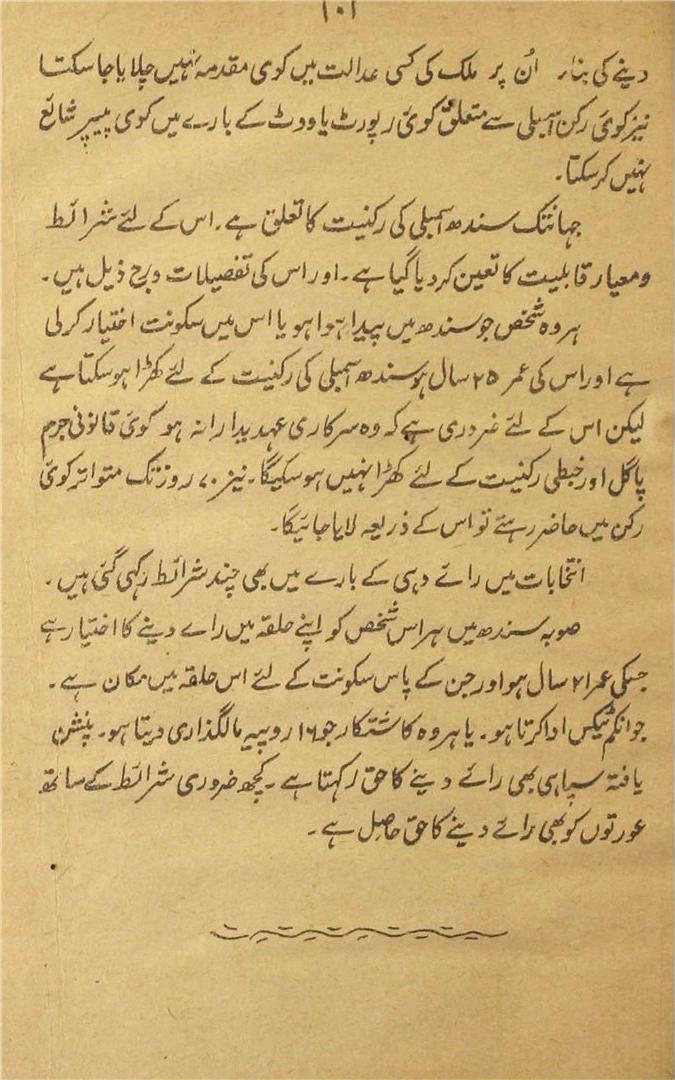 ۱۰۱
دینے کی بناء اُن پر ملک کی کسی عدالت میں کوی مقدمہ نہیں چلایا جا سکتا
نیز کوئی رکن اسمبلی سے متعلق کوئی رپورٹ یا ووٹ کے بارے میں کوی پیپر شائع
نہیں کر سکتا۔
جہانتک سندھ اسمبلی کی رکنیت کا تعلق ہے۔ اس کے لئے شرائط
و معیار قابلیت کا تعین کر دیا گیا ہے۔ اور اس کی تفصیلات درج ذیل ہیں۔
ہر وہ شخص جو سندھ میں پیدا ہوا ہو یا اس میں سکونت اختیار کر لی
ہے اور اس کی عمر ۲۵ سال ہو سندھ اسمبلی کی رکنیت کے لئے کھڑا ہو سکتا ہے
لیکن اس کے لئے ضروری ہے کہ وہ سرکاری عہدیدار نہ ہو کوئی قانونی جرم
پاگل اور خبطی رکنیت کے لئے کھڑا نہیں ہو سکیگا۔ نیز ۷۰ روز تک متواتر کوئی
رکن میں حاضر رہتے تو اس کے ذریعہ لایا جائیگا۔
انتخابات میں رائے دہی کے بارے میں بھی چند شرائط رکھی گئی ہیں۔
صوبہ سندھ میں ہر اس شخص کو اپنے حلقہ میں راے دینے کا اختیار ہے
جسکی عمر ۲۱ سال ہو اور جن کے پاس سکونت کے لئے اس حلقہ میں مکان ہے۔
جو انکم ٹیکس ادا کرتا ہو۔ یا ہر وہ کاشتکار جو ۱۶ روپیہ مالگذاری دیتا ہو۔ پنشن
یافتہ سپاہی بھی رائے دینے کا حق رکہتا ہے۔ کچھ ضروری شرائط کے ساتھ
عورتوں کو بھی رائے دینے کا حق حاصل ہے۔